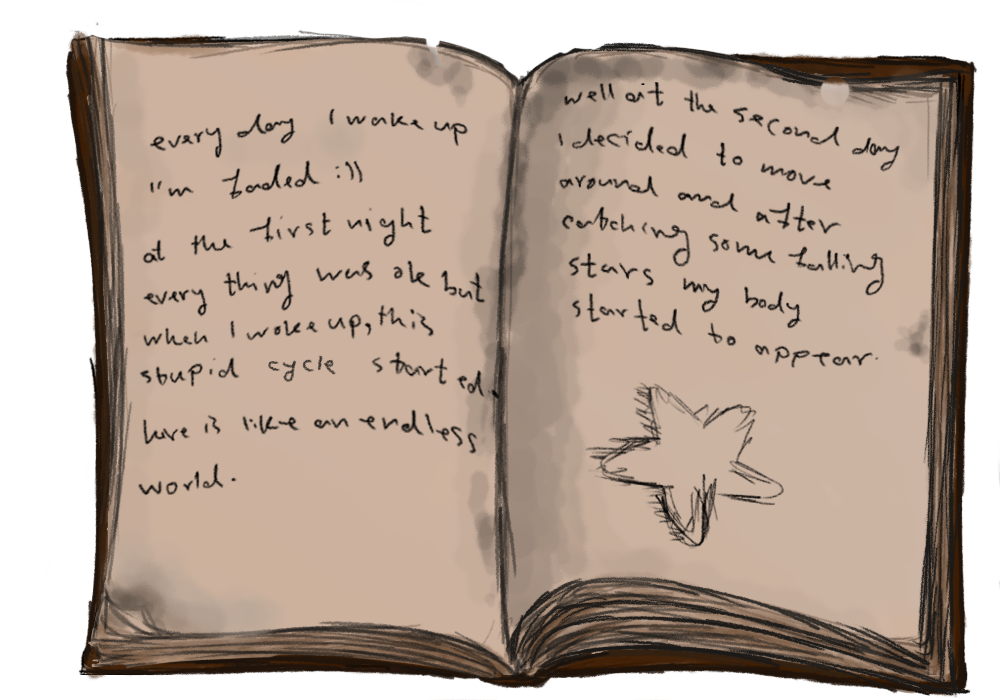 every day I wake up
I'm faded :))
at the first night
every thing was ok but
when I woke up, this
stupid cycle started.
here is like an endless
world.
well at the second day
I decided to move
around and after
catching some falling
stars my body
started to appear.